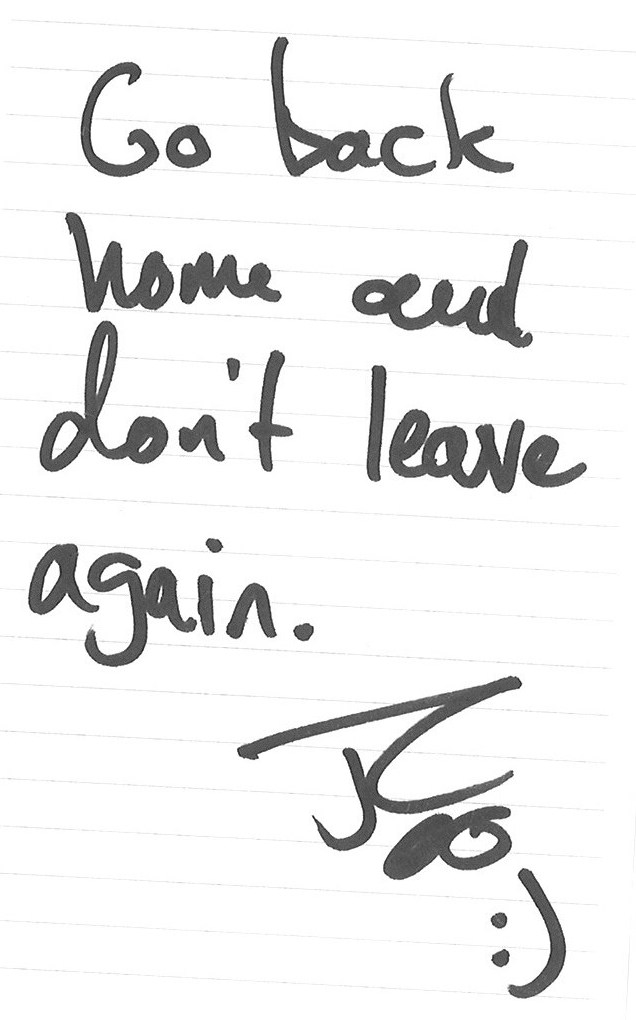 Go back
home and
don't leave
again.
:)